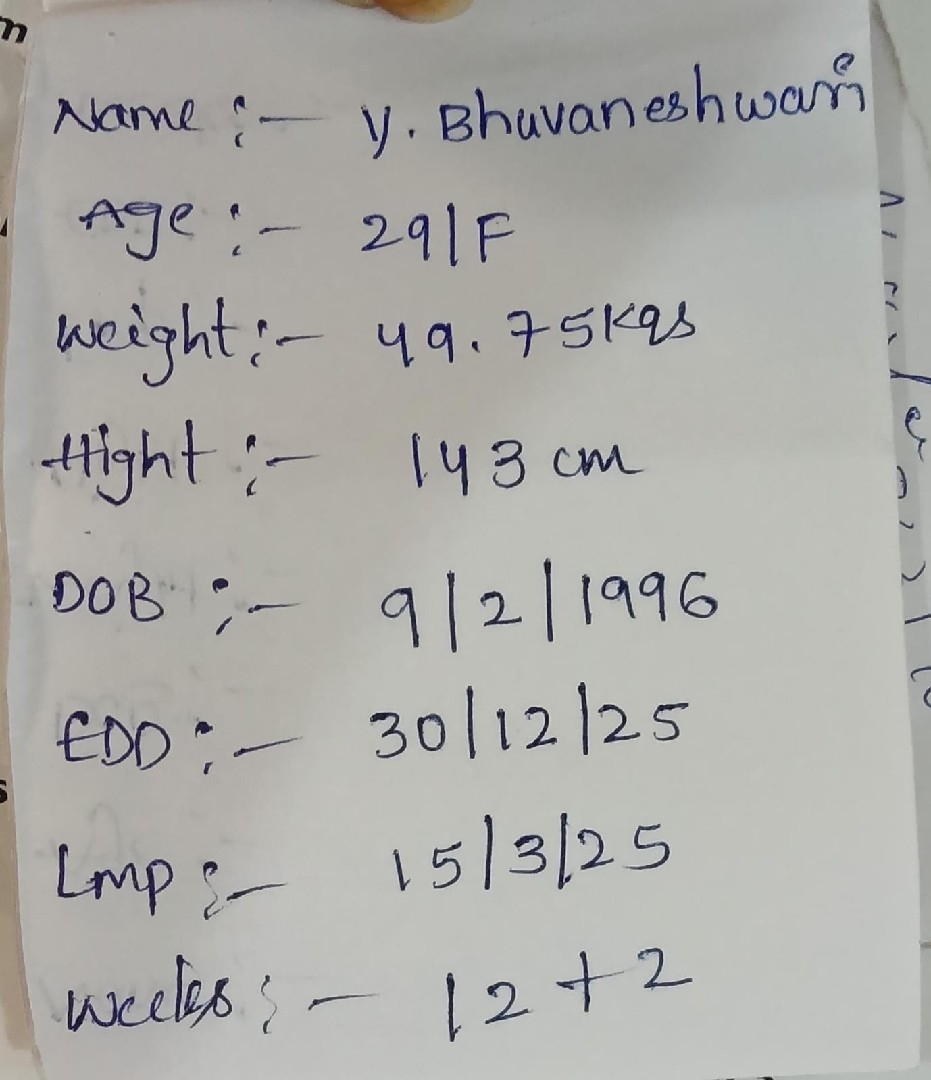 Name :- y. Bhuvaneshwari
Age :- 29/F
Weight :- 49.75Kgs
Hight :- 143 cm
DOB :- 9/2/1996
EDD :- 30/12/25
Lmp :- 15/3/25
Weeks :- 12+2